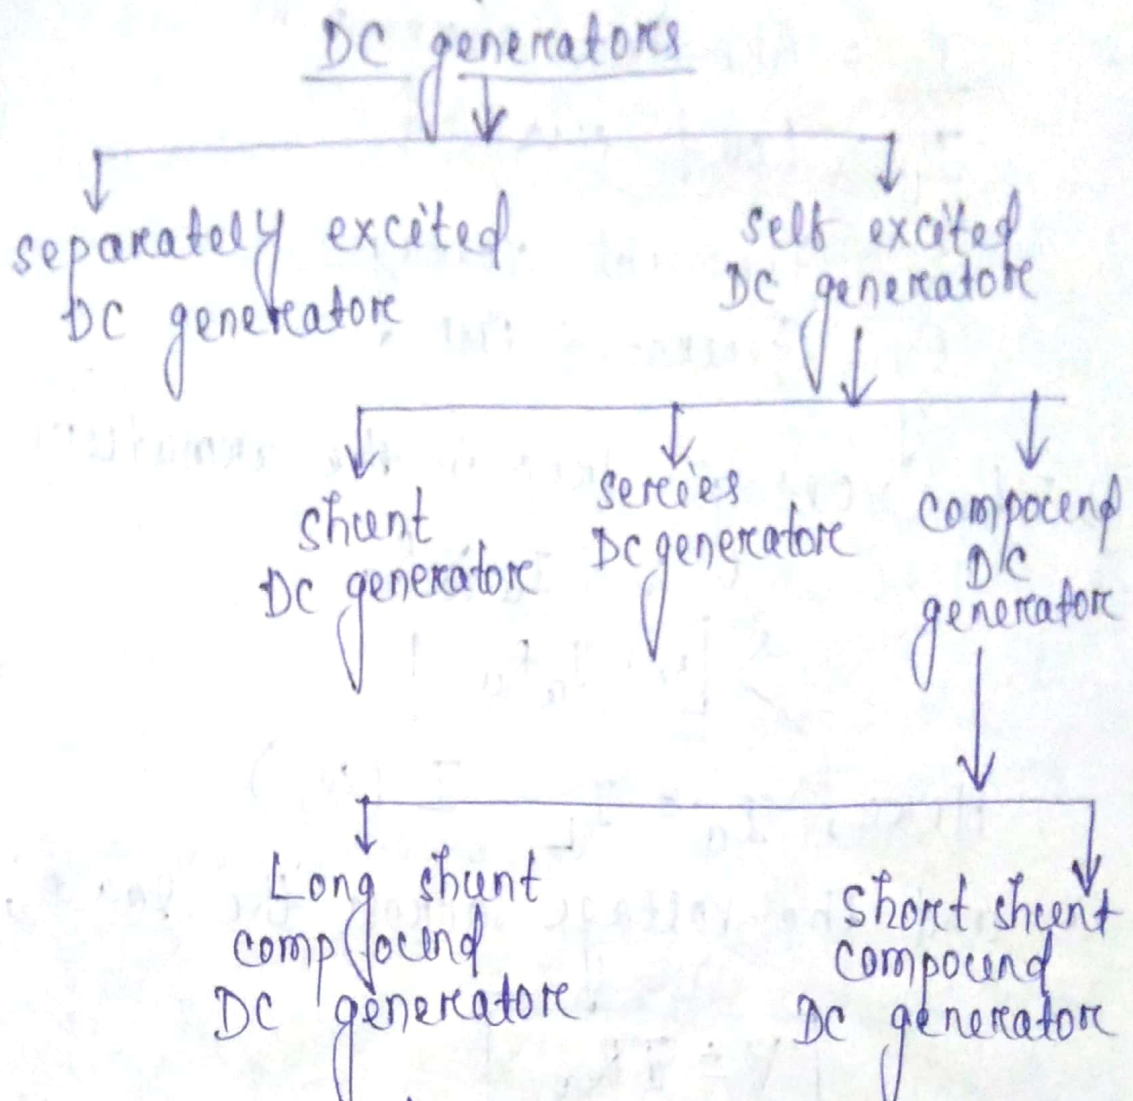 DC generators
separately excited
DC generator
self excited
DC generator
shunt
DC generator
series
DC generator
compound
DC
generator
Long shunt
compound
DC generator
short shunt
compound
DC generator